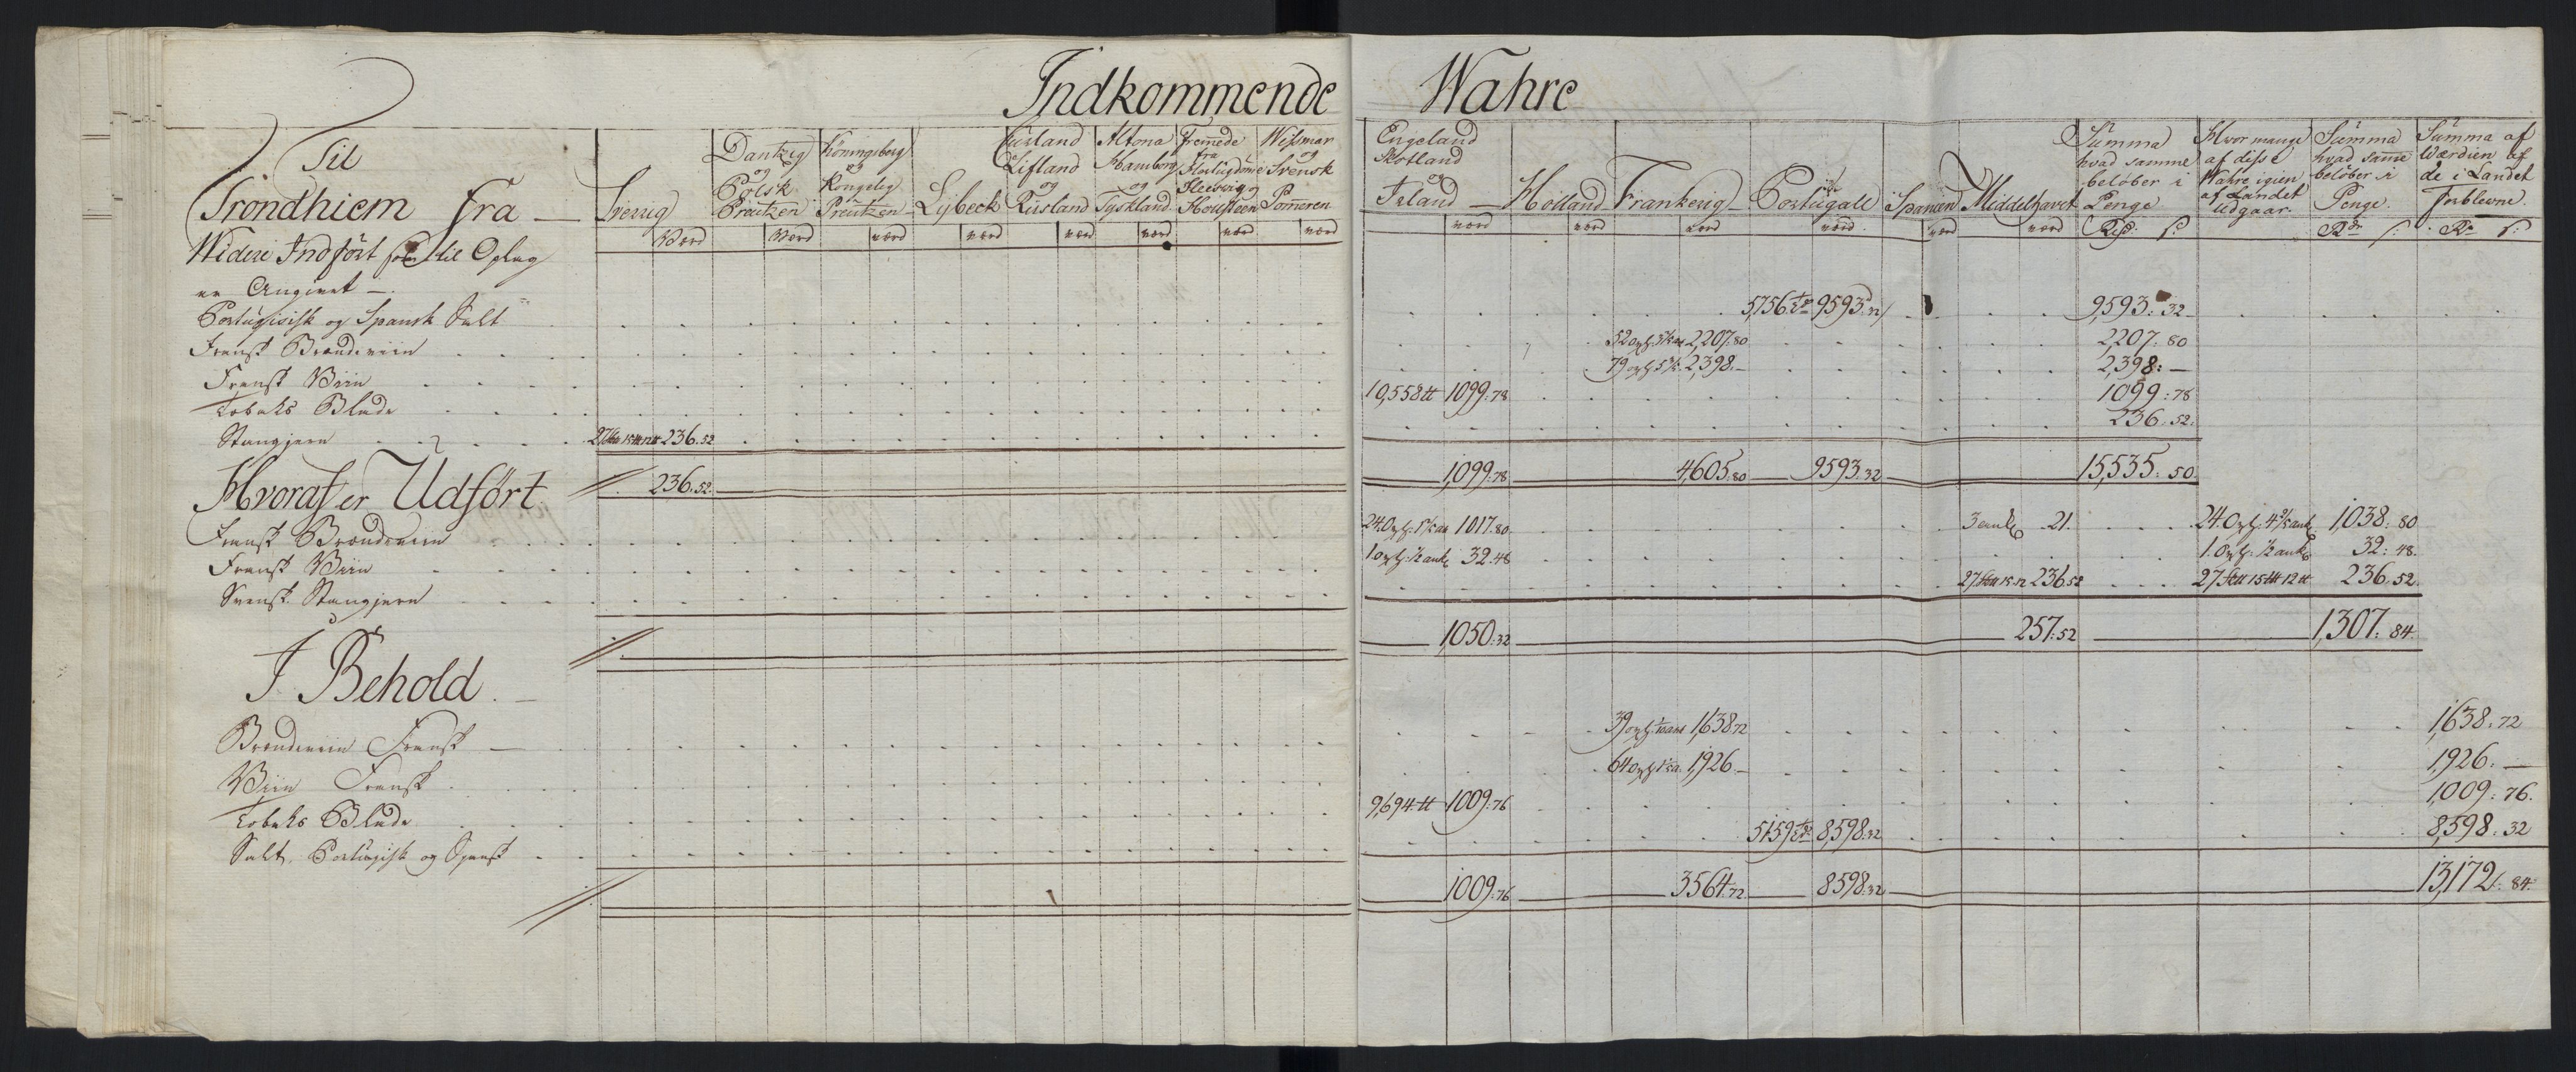 Indkommende Wahre
Til
Trondhiem fra —
Sverrig
Dantzig og Polsk Preutzen
Königsberg og Kongelig Preutzen
Lybeck
Curland Lifland og Rusland
Altona Hamborg og Tyskland
Fremmede fra Hertugdom̅e Slesvig og Holsteen
Wismar og Svensk Pom̅eren
Engeland Skotland og Irland
Holland
Frankerig
Portugall
Spanien
Middelhavet
Summa hvad samme beløber i Penge
Hvor mange af disse Wahre igien af Landet Udgaar.
Sum̅a hvad sam̅e beløber i Penge.
Summa af Værdien af de i Landet forblevne.
Værd Værd værd værd værd værd værd værd værd værd værd værd værd værd Rd. s. Rdr s. Rdr s.
Widere Indført som til Oplag
er Angivet —
Portugisisk og Spansk Salt 5,756 tdr 9593.32 9,593: 32
Fransk Brændeviin 52 oxh. 2,207.80 2,207: 80
Fransk Viin 79 oxh. 2,398.— 2,398: —
Tobaks Blade 10,558 ℔ 1099:78 1099: 78
Stangjern 236.52 236. 52.
Hvoraf er Udført 236.52. 1,099:78 4,605:80 9593.32 15,535: 50.
Fransk Brændeviin 24 Oxh. 1017.80 3 ank. 21. 24. Oxh. 1,038: 80
Fransk Viin 1 oxh. ½ ank. 32.48 1. Oxh. ½ ank. 32: 48.
Svensk Stangjern 236.52 236. 52.
1,050:32 257:52 1,307: 84.
I Behold. —
Brændeviin Fransk — 39 oxh. 1,638.72 1,638. 72
Viin Fransk 64 Oxh. 1,926.— 1,926. —
Tobaks Blade 9,694 ℔ 1009:76 1,009: 76.
Salt, Portugisk og Spansk 5159 tdr 8,598:32 8,598: 32
1009:76 3564:72 8598:32 13,172: 84.